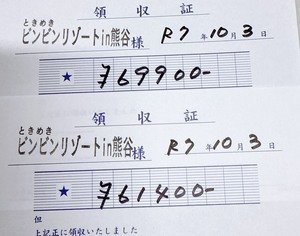 領収証
ときめき
ピンピンリゾートin熊谷様 R7年10月3日
★ ¥69900-
領収証
ときめき
ピンピンリゾートin熊谷様 R7年10月3日
★ ¥61400-
但
上記正に領収いたしました